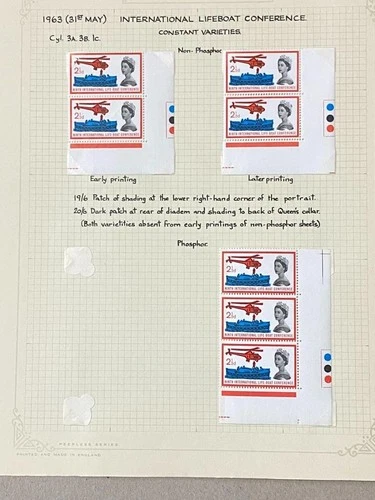 1963 (31ST MAY) INTERNATIONAL LIFEBOAT CONFERENCE.
CONSTANT VARIETIES.
Cyl. 3A. 3B. 1c.
Non-Phosphor
2½d 2½d
NINTH INTERNATIONAL LIFE-BOAT CONFERENCE NINTH INTERNATIONAL LIFE-BOAT CONFERENCE
2½d 2½d
NINTH INTERNATIONAL LIFE-BOAT CONFERENCE NINTH INTERNATIONAL LIFE-BOAT CONFERENCE
Early printing Later printing
19/6 Patch of shading at the lower right-hand corner of the portrait.
20/6 Dark patch at rear of diadem and shading to back of Queen's collar.
(Both varietities absent from early printings of non-phosphor sheets)
Phosphor.
2½d
NINTH INTERNATIONAL LIFE-BOAT CONFERENCE
2½d
NINTH INTERNATIONAL LIFE-BOAT CONFERENCE
2½d
NINTH INTERNATIONAL LIFE-BOAT CONFERENCE
PEERLESS SERIES
PRINTED AND MADE IN ENGLAND